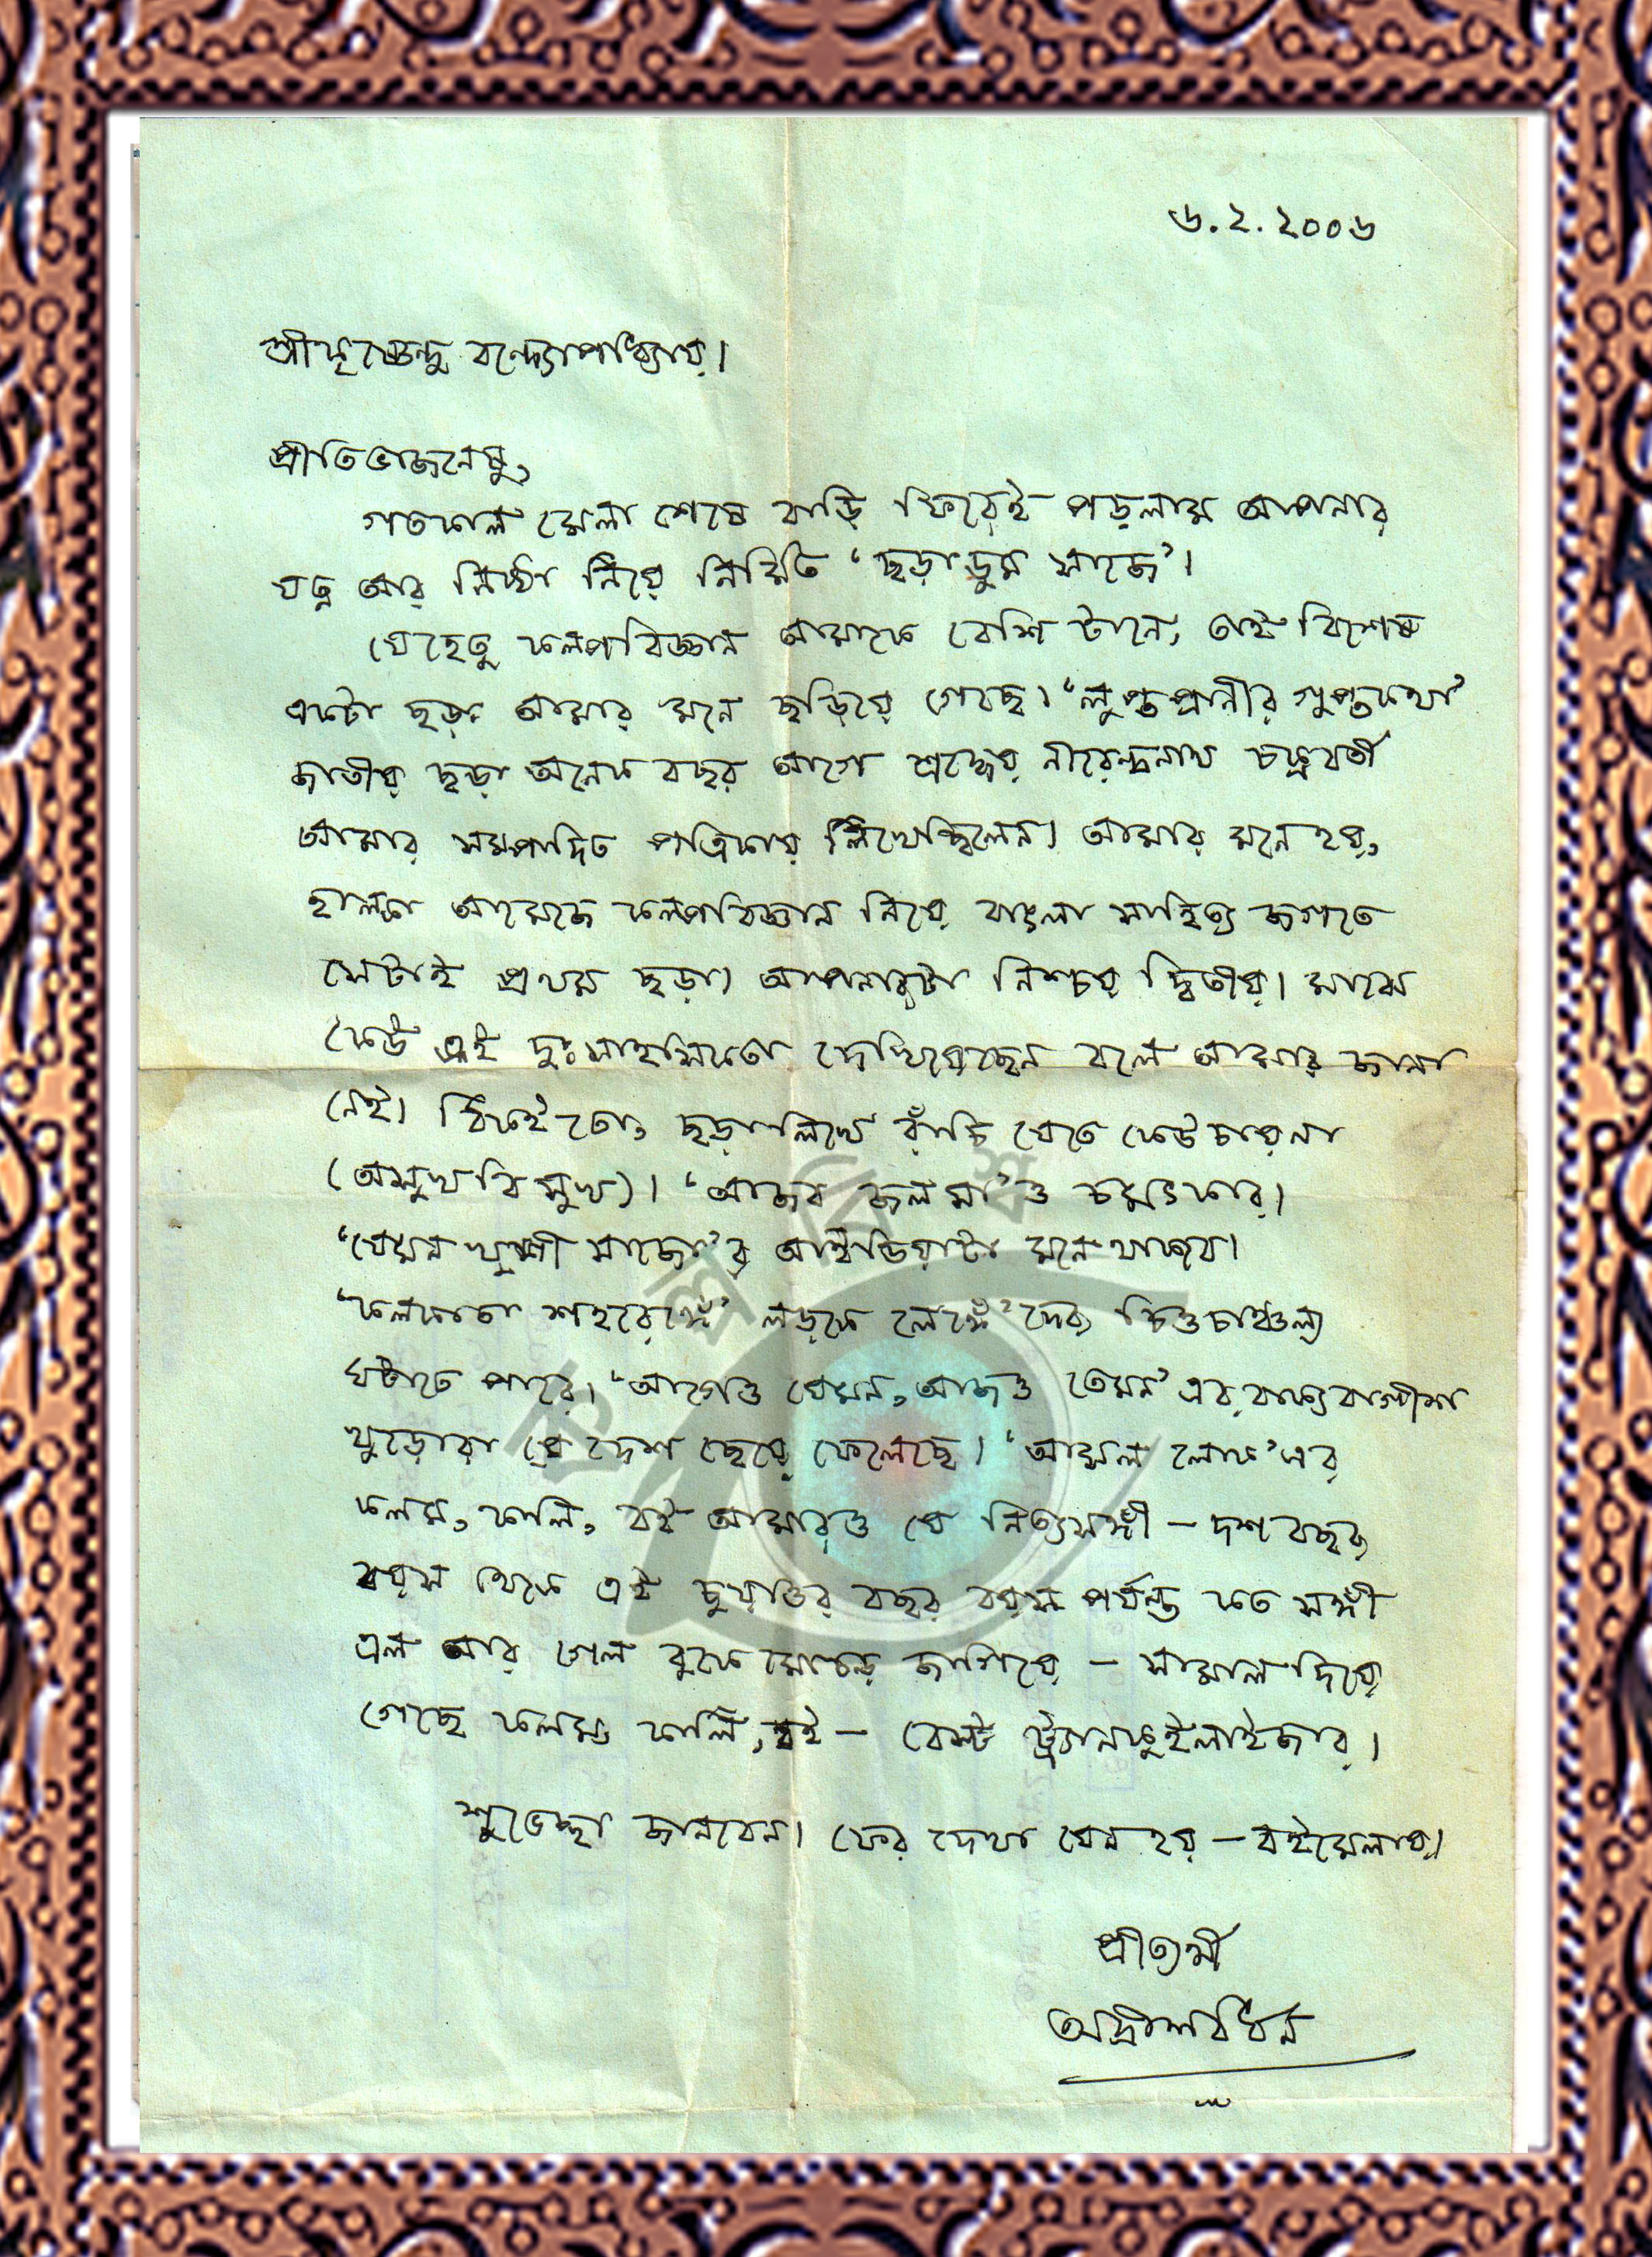 ৬.২.২০০৬
শ্রীকৃষ্ণেন্দু বন্দ্যোপাধ্যায়।
প্রীতিভাজনেষু,
গতকাল মেলা শেষে বাড়ি ফিরেই পড়লাম আপনার
যত্ন আর নিষ্ঠা নিয়ে নির্মিত ‘ছড়াড়ুম সাজে’।
যেহেতু কল্পবিজ্ঞান আমাকে বেশি টানে, তাই বিশেষ
একটা ছড়া আমার মনে ছড়িয়ে গেছে। ‘লুপ্তপ্রানীর গুপ্তকথা’
জাতীয় ছড়া অনেক বছর আগে শ্রদ্ধেয় নীরেন্দ্রনাথ চক্রবর্তী
আমার সম্পাদিত পত্রিকায় লিখেছিলেন। আমার মনে হয়,
হালকা আমেজে কল্পবিজ্ঞান নিয়ে বাংলা সাহিত্য জগতে
সেটাই প্রথম ছড়া। আপনারটা নিশ্চয় দ্বিতীয়। মাঝে
কেউ এই দুঃসাহসিকতা দেখিয়েছেন বলে আমার জানা
নেই। ঠিকই তো, ছড়া লিখে রাঁচি যেতে কেউ চায়না
(অসুখবিসুখ)। ‘আজব জলসা’ও চমৎকার।
‘যেমন খুশী সাজো’র আইডিয়াটা মনে থাকবে।
‘কলকাতা শহরে লড়কে লেঙ্গে’দের চিত্তচাঞ্চল্য
ঘটাতে পারে। ‘আগেও যেমন, আজও তেমন’ এর বাক্যবাগীশ
খুড়োরা যে দেশ ছেয়ে ফেলেছে। ‘আসল লোক’এর
কলম, কালি, বই আমারও যে নিত্যসঙ্গী – দশ বছর
বয়স থেকে এই চুয়াত্তর বছর বয়স পর্যন্ত কত সঙ্গী
এল আর গেল বুকে মোচড় জাগিয়ে – সামাল দিয়ে
গেছে কলম, কালি, বই – বেস্ট ট্র্যানকুইলাইজার।
শুভেচ্ছা জানবেন। ফের দেখা যেন হয় – বইমেলায়।
প্রীত্যর্থী
অদ্রীশ বর্ধন